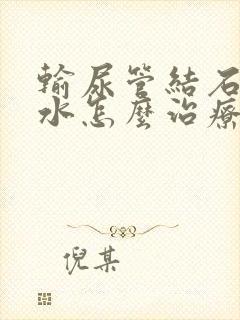 輸尿管結石
水怎麼治療
倪某